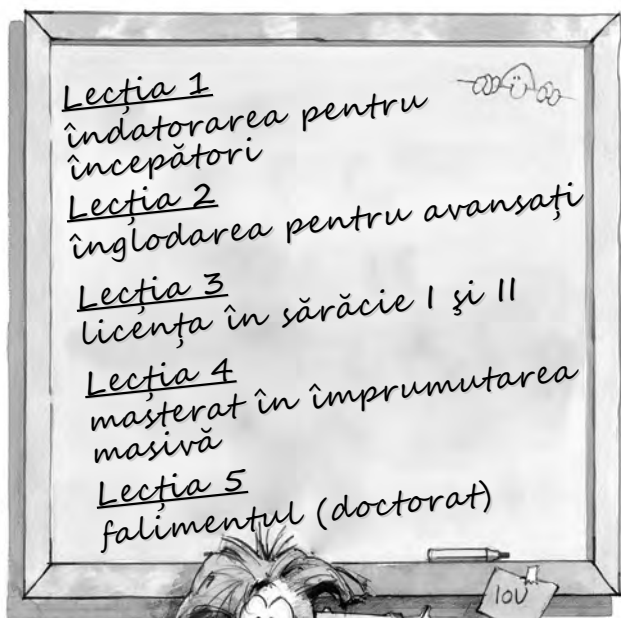 Lecția 1
îndatorarea pentru
începători
Lecția 2
înglodarea pentru avansați
Lecția 3
licența în sărăcie I și II
Lecția 4
masterat în împrumutarea
masivă
Lecția 5
falimentul (doctorat)
IOU